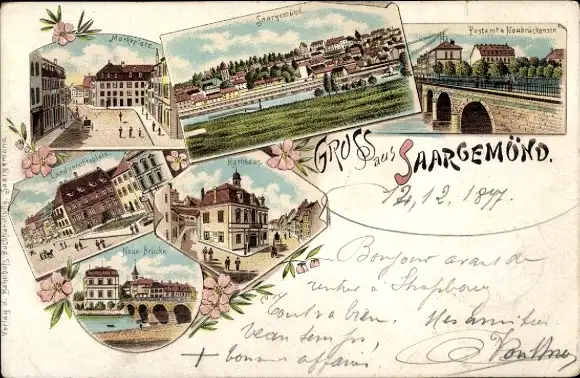 Marktplatz
Saargemünd
Postamt u Neubrückenstr
Landgerichtsplatz
Rathhaus
Neue Brücke
GRUSS aus SAARGEMÜND.
12.12.1897.
Bonjour avant de
rentrer à Strasbourg
Tout va bien. Mes amitiés
beau temps,
+ bonnes affaires